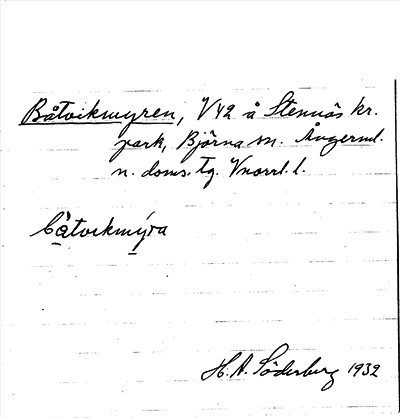 Båtvikmyren, V42 å Stennäs kr.
park, Björna sn. Ångerml.
n. doms. tg. Vnorrl. l.
båtvikmýra
H.A. Söderberg 1932